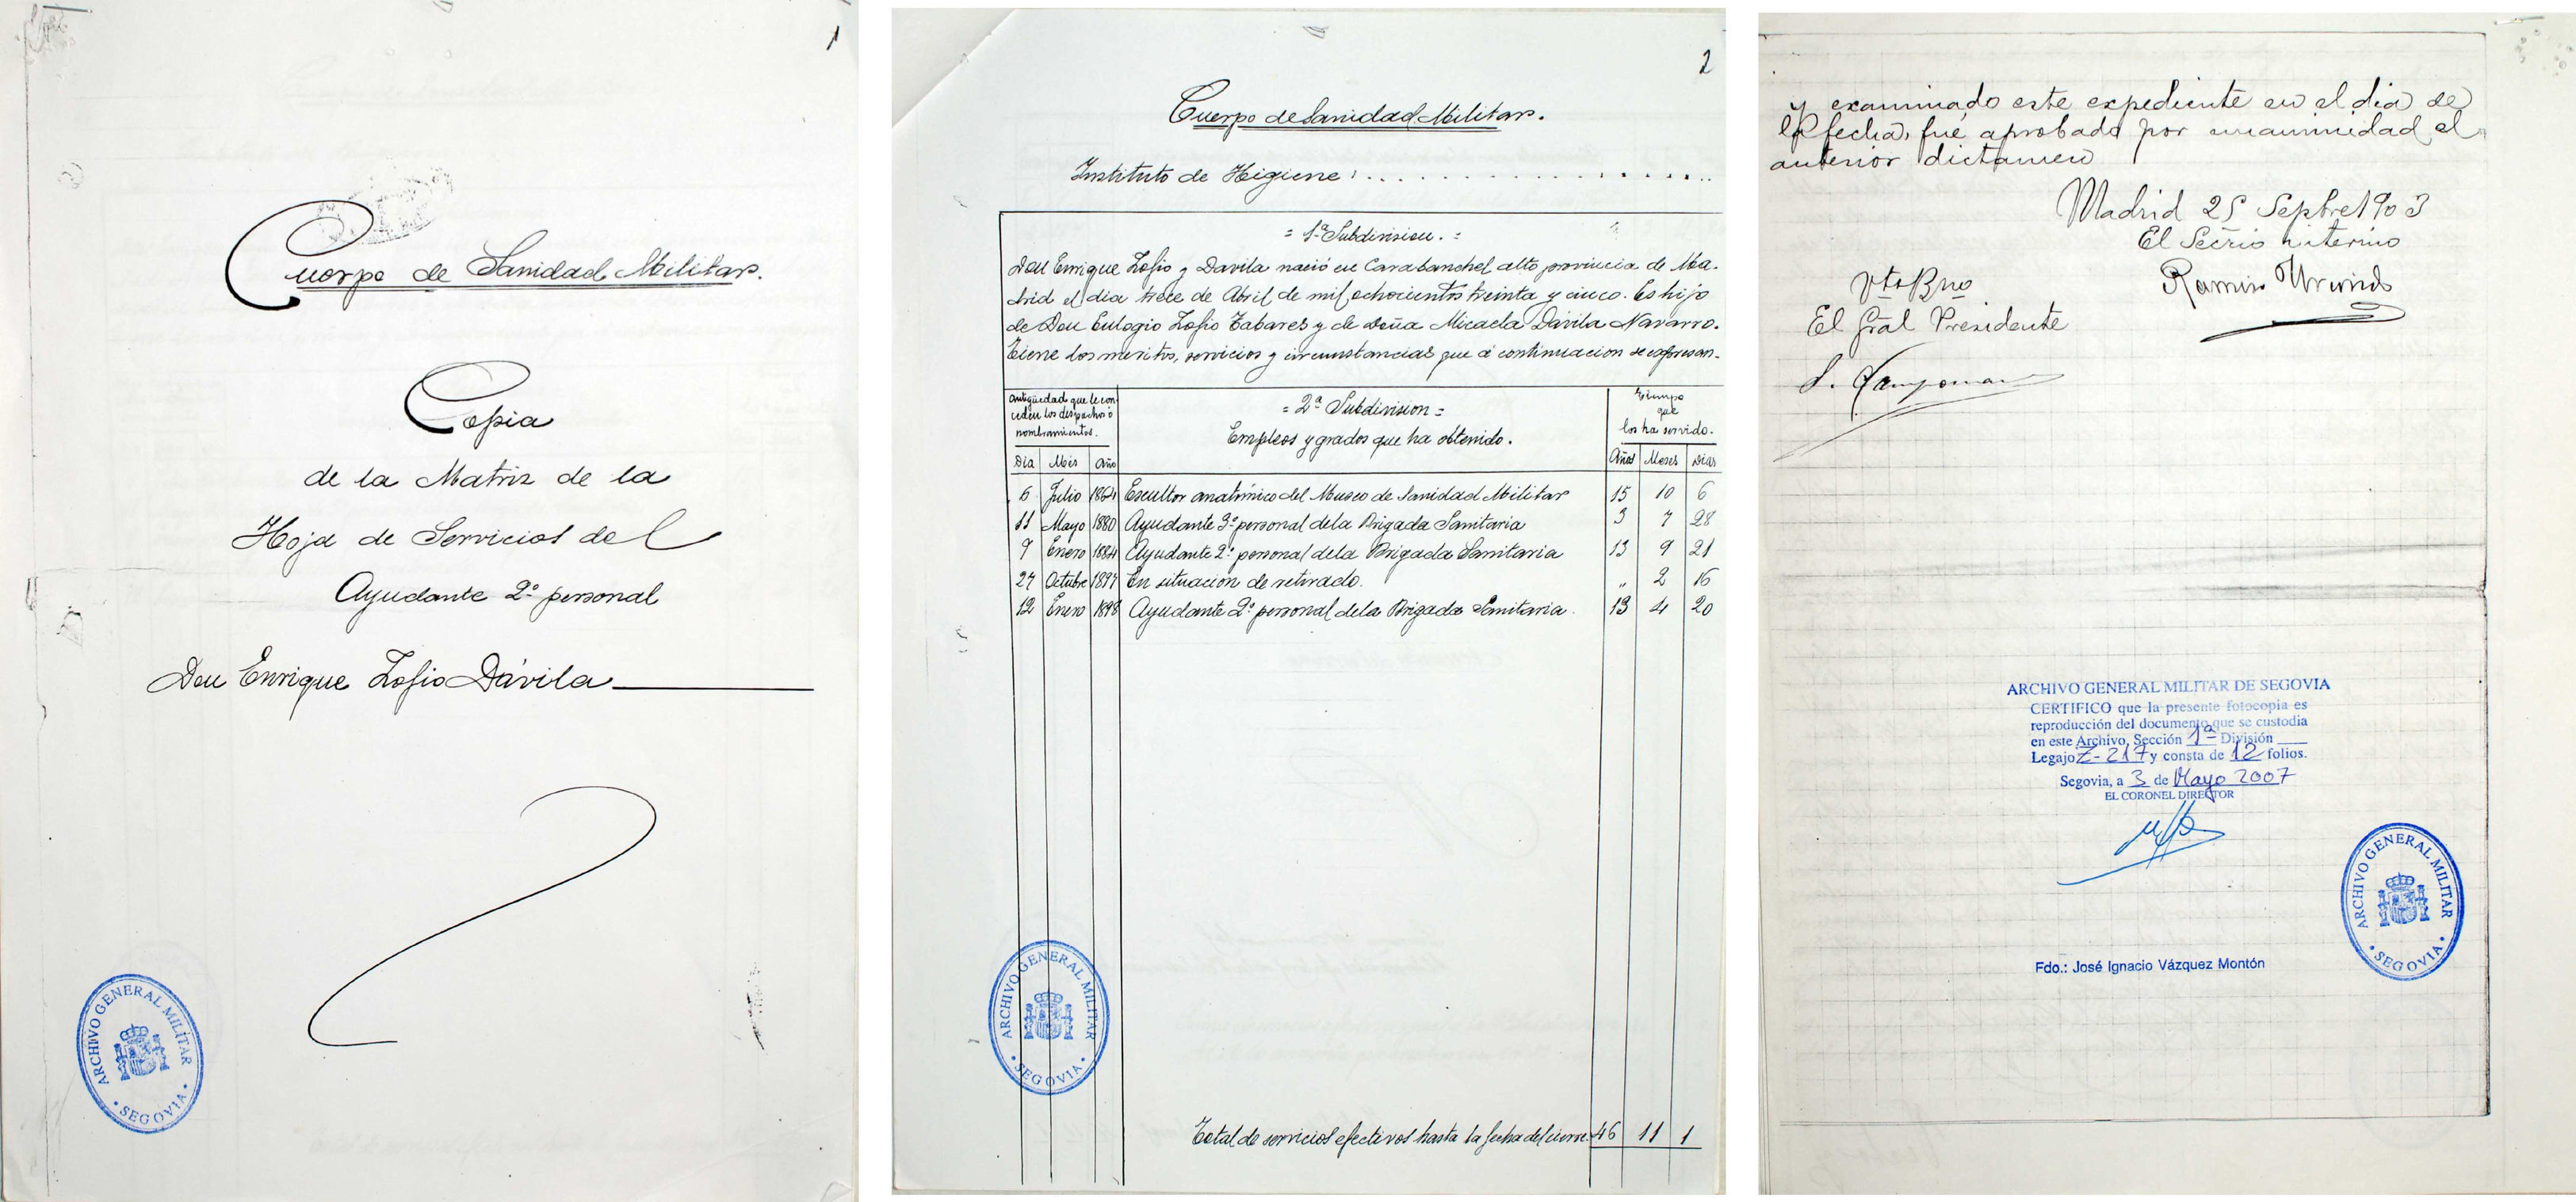 1
Cuerpo de Sanidad Militar.
Copia
de la Matriz de la
Hoja de Servicios del
Ayudante 2º personal
Don Enrique Zofio Dávila
ARCHIVO GENERAL MILITAR
· SEGOVIA ·
2
Cuerpo de Sanidad Militar.
Instituto de Higiene
= 1ª Subdivision. =
Don Enrique Zofio y Davila nació en Carabanchel alto provincia de Ma-
drid el dia trece de Abril de mil ochocientos treinta y cinco. Es hijo
de Don Eulogio Zofio Tabares y de Doña Micaela Davila Navarro.
Tiene los meritos, servicios y circunstancias que á continuacion se espresan.
Antigüedad que le con-
ceden los despachos ó
nombramientos.
= 2ª Subdivision =
Empleos y grados que ha obtenido.
Tiempo
que
los ha servido.
Dia Mes Año Años Meses Dias
6 Julio 1864 Escultor anatómico del Museo de Sanidad Militar 15 10 6
11 Mayo 1880 Ayudante 3º personal de la Brigada Sanitaria 3 7 28
9 Enero 1884 Ayudante 2º personal de la Brigada Sanitaria 13 9 21
27 Octubre 1897 En situacion de retirado. " 2 16
12 Enero 1898 Ayudante 2º personal de la Brigada Sanitaria. 13 4 20
Total de servicios efectivos hasta la fecha del cierre. 46 11 1
ARCHIVO GENERAL MILITAR
· SEGOVIA ·
y examinado este expediente en el dia de
la fecha, fué aprobado por unanimidad el
anterior dictamen
Madrid 25 Septbre 1903
El Secrio interino
Ramiro
Vto Bno
El Gral Presidente
ARCHIVO GENERAL MILITAR DE SEGOVIA
CERTIFICO que la presente fotocopia es
reproducción del documento que se custodia
en este Archivo, Sección 1ª División
Legajo Z-217 y consta de 12 folios.
Segovia, a 3 de Mayo 2007
EL CORONEL DIRECTOR
ARCHIVO GENERAL MILITAR
· SEGOVIA ·
Fdo.: José Ignacio Vázquez Montón